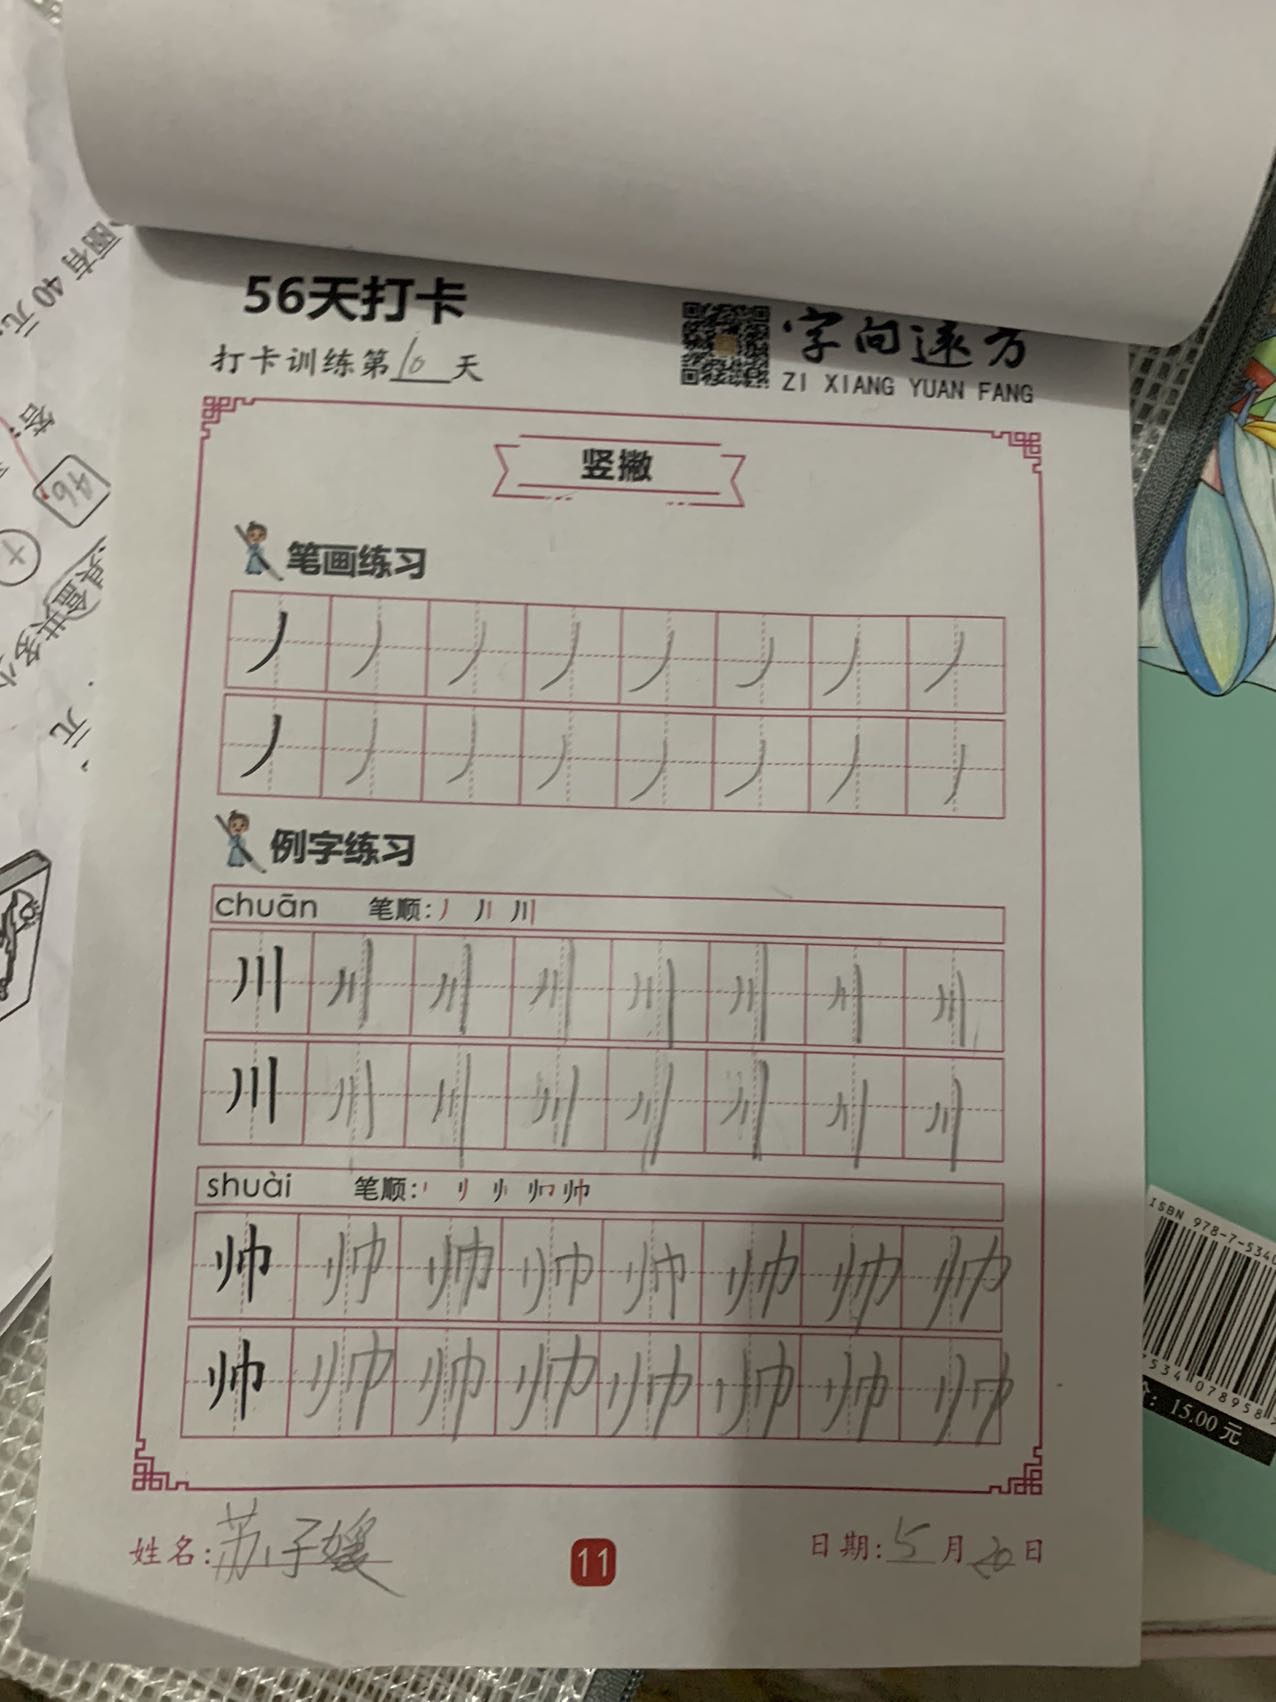 56天打卡
字向远方
打卡训练第10天
ZI XIANG YUAN FANG
竖撇
笔画练习
例字练习
chuān 笔顺:丿 丿丨 川
川 川 川 川 川 川 川 川
川 川 川 川 川 川 川 川
shuài 笔顺:
帅 帅 帅 帅 帅 帅 帅 帅
帅 帅 帅 帅 帅 帅 帅 帅
姓名:苏子媛
11
日期:5月20日
面有40元
答:
元
ISBN 978-7-5340
534078958
15.00元